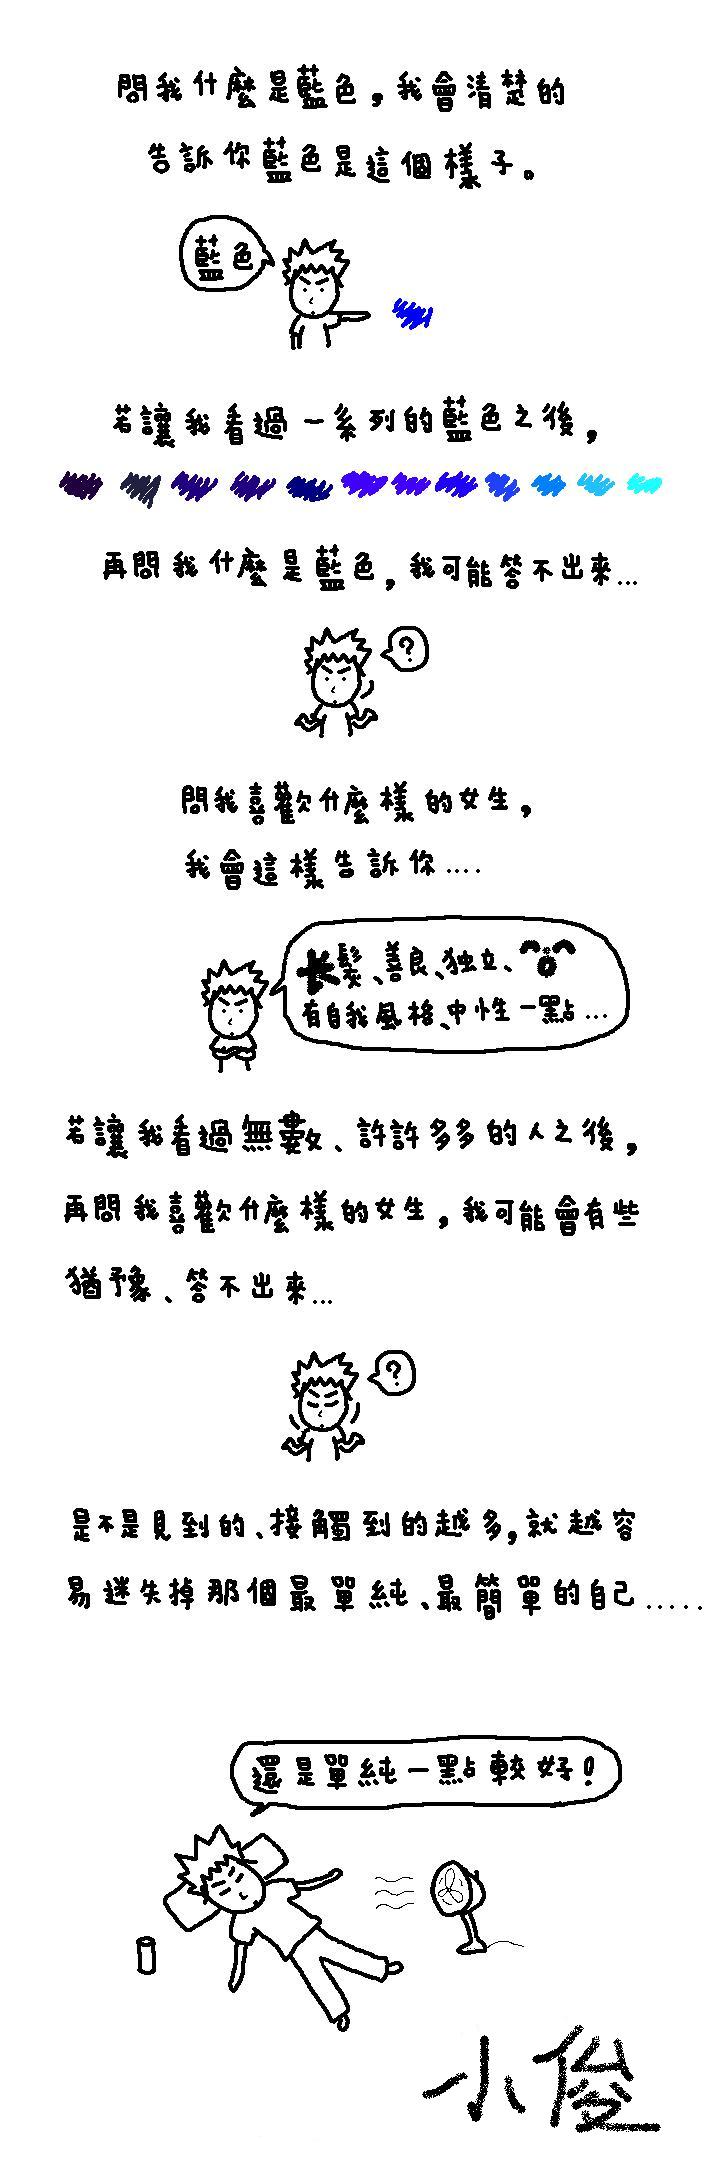 問我什麼是藍色，我會清楚的
告訴你藍色是這個樣子。
藍色
若讓我看過一系列的藍色之後，
再問我什麼是藍色，我可能答不出來...
?
問我喜歡什麼樣的女生，
我會這樣告訴你....
長髮、善良、独立、
有自我風格、中性一點...
若讓我看過無數、許許多多的人之後，
再問我喜歡什麼樣的女生，我可能會有些
猶予象、答不出來...
?
是不是見到的、接觸到的越多，就越容
易迷失掉那個最單純、最簡單的自己.....
還是單純一點較好!
小俊